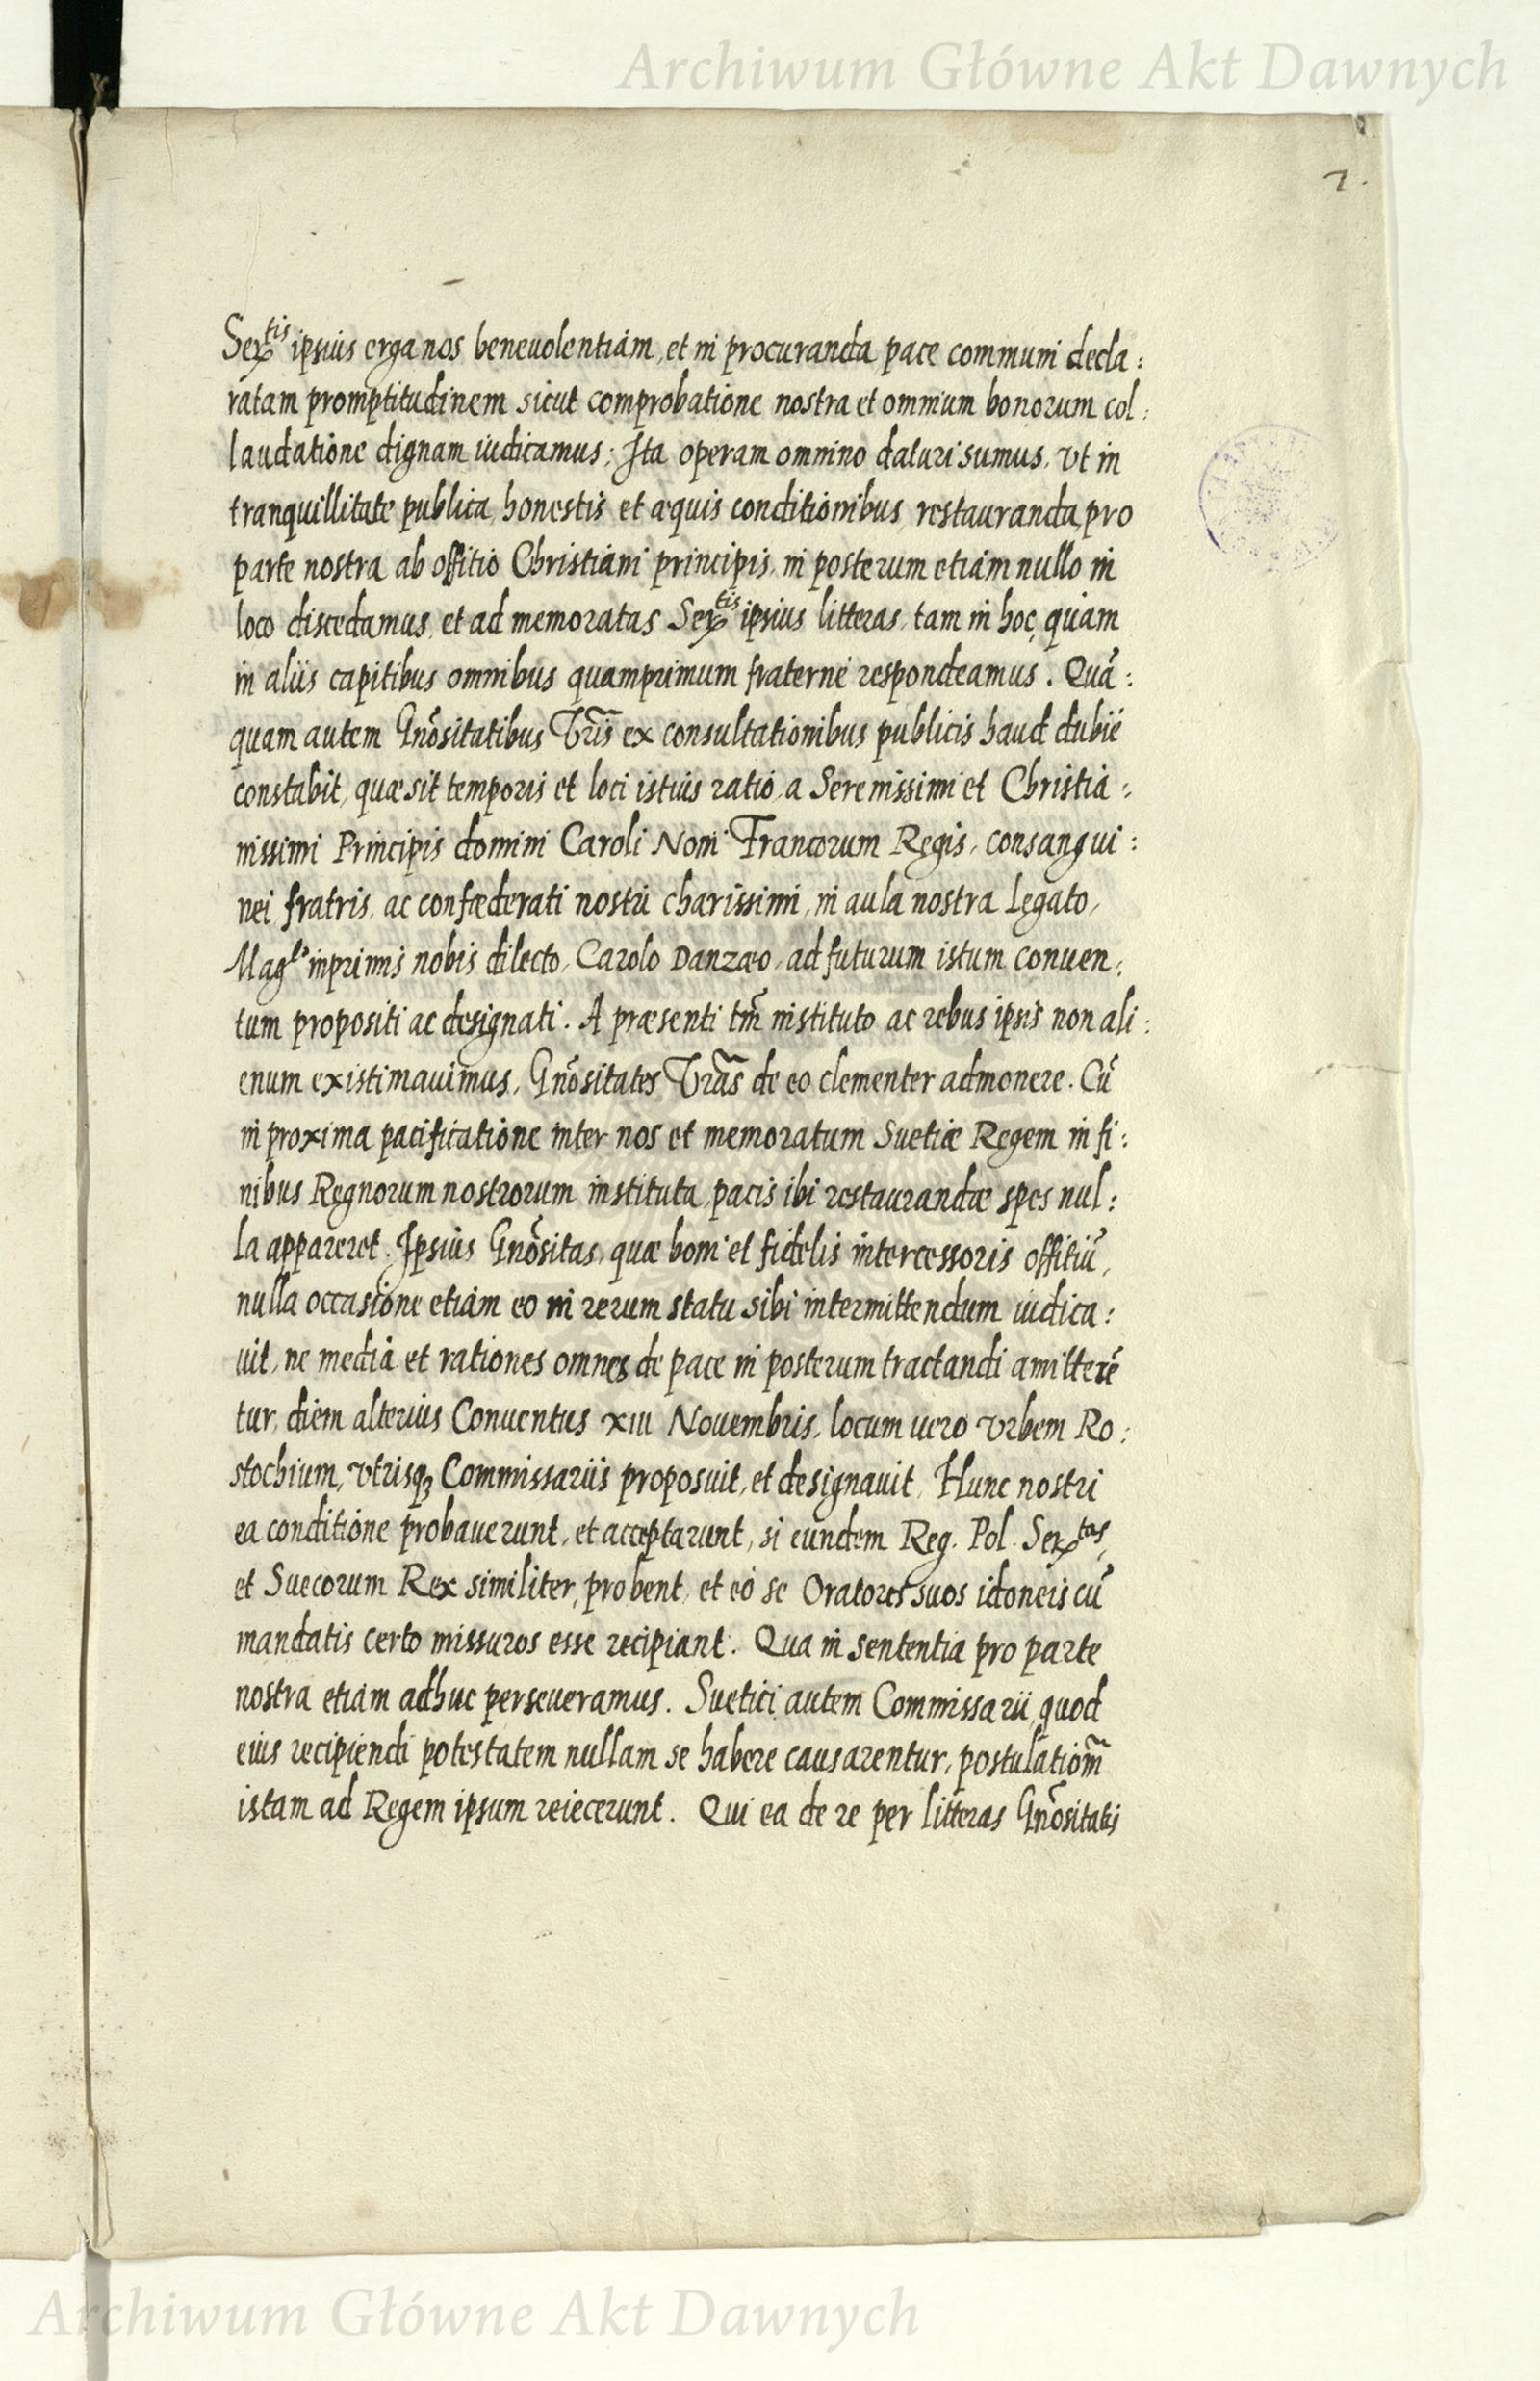 Archiwum Główne Akt Dawnych
7.
Ser^tis ipsius erga nos beneuolentiam, et in procuranda pace communi decla:
ratam promptitudinem sicut comprobatione nostra et omnium bonorum col:
laudatione dignam iudicamus; Ita operam omnino daturi sumus, vt in
tranquillitate publica, honestis et æquis conditionibus, restauranda, pro
parte nostra ab offitio Christiani principis, in posterum etiam nullo in
loco discedamus, et ad memoratas Ser^tis ipsius litteras, tam in hoc, quam
in aliis capitibus omnibus quamprimum fraternè respondeamus. Quã:
quam autem Gnõsitatibus Vr̃is ex consultationibus publicis haud dubiè
constabit, quæ sit temporis et loci istius ratio, a Serenissimi et Christia:
nissimi Principis domini Caroli Noni Francorum Regis, consangui:
nei fratris, ac confæderati nostri charissimi, in aula nostra Legato,
Mag^co inprimis nobis dilecto, Carolo Danzæo, ad futurum istum conuen:
tum propositi ac designati. A præsenti tm̃ instituto ac rebus ipsis non ali:
enum existimauimus, Gnõsitates Vr̃as de eo clementer admonere. Cũ
in proxima pacificatione inter nos et memoratum Suetiæ Regem in fi:
nibus Regnorum nostrorum instituta, pacis ibi restaurandæ spes nul:
la appareret. Ipsius Gnõsitas, quæ boni et fidelis intercessoris offitiũ,
nulla occasione etiam eo in rerum statu sibi intermittendum iudica:
uit, ne media et rationes omnes de pace in posterum tractandi amitterẽ
tur, diem alterius Conuentus xiii Nouembris, locum uero vrbem Ro:
stochium, vtrisq₃ Commissariis proposuit, et designauit. Hunc nostri
ea conditione probauerunt, et acceptarunt, si eundem Reg. Pol. Ser^tas,
et Suecorum Rex similiter, probent, et eò se Oratores suos idoneis cũ
mandatis certo missuros esse recipiant. Qua in sententia pro parte
nostra etiam adhuc perseueramus. Suetici autem Commissarii, quod
eius recipiendi potestatem nullam se habere causarentur, postulatiom̃
istam ad Regem ipsum reiecerunt. Qui ea de re per litteras Gnõsitatis
Archiwum Główne Akt Dawnych